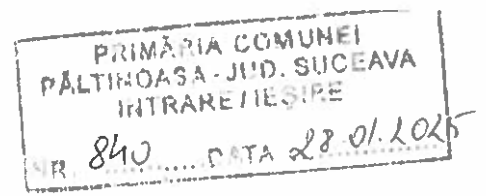 PRIMĂRIA COMUNEI
PĂLTINOASA - JUD. SUCEAVA
INTRARE / IEȘIRE
NR. 840 .... DATA 28.01.2025